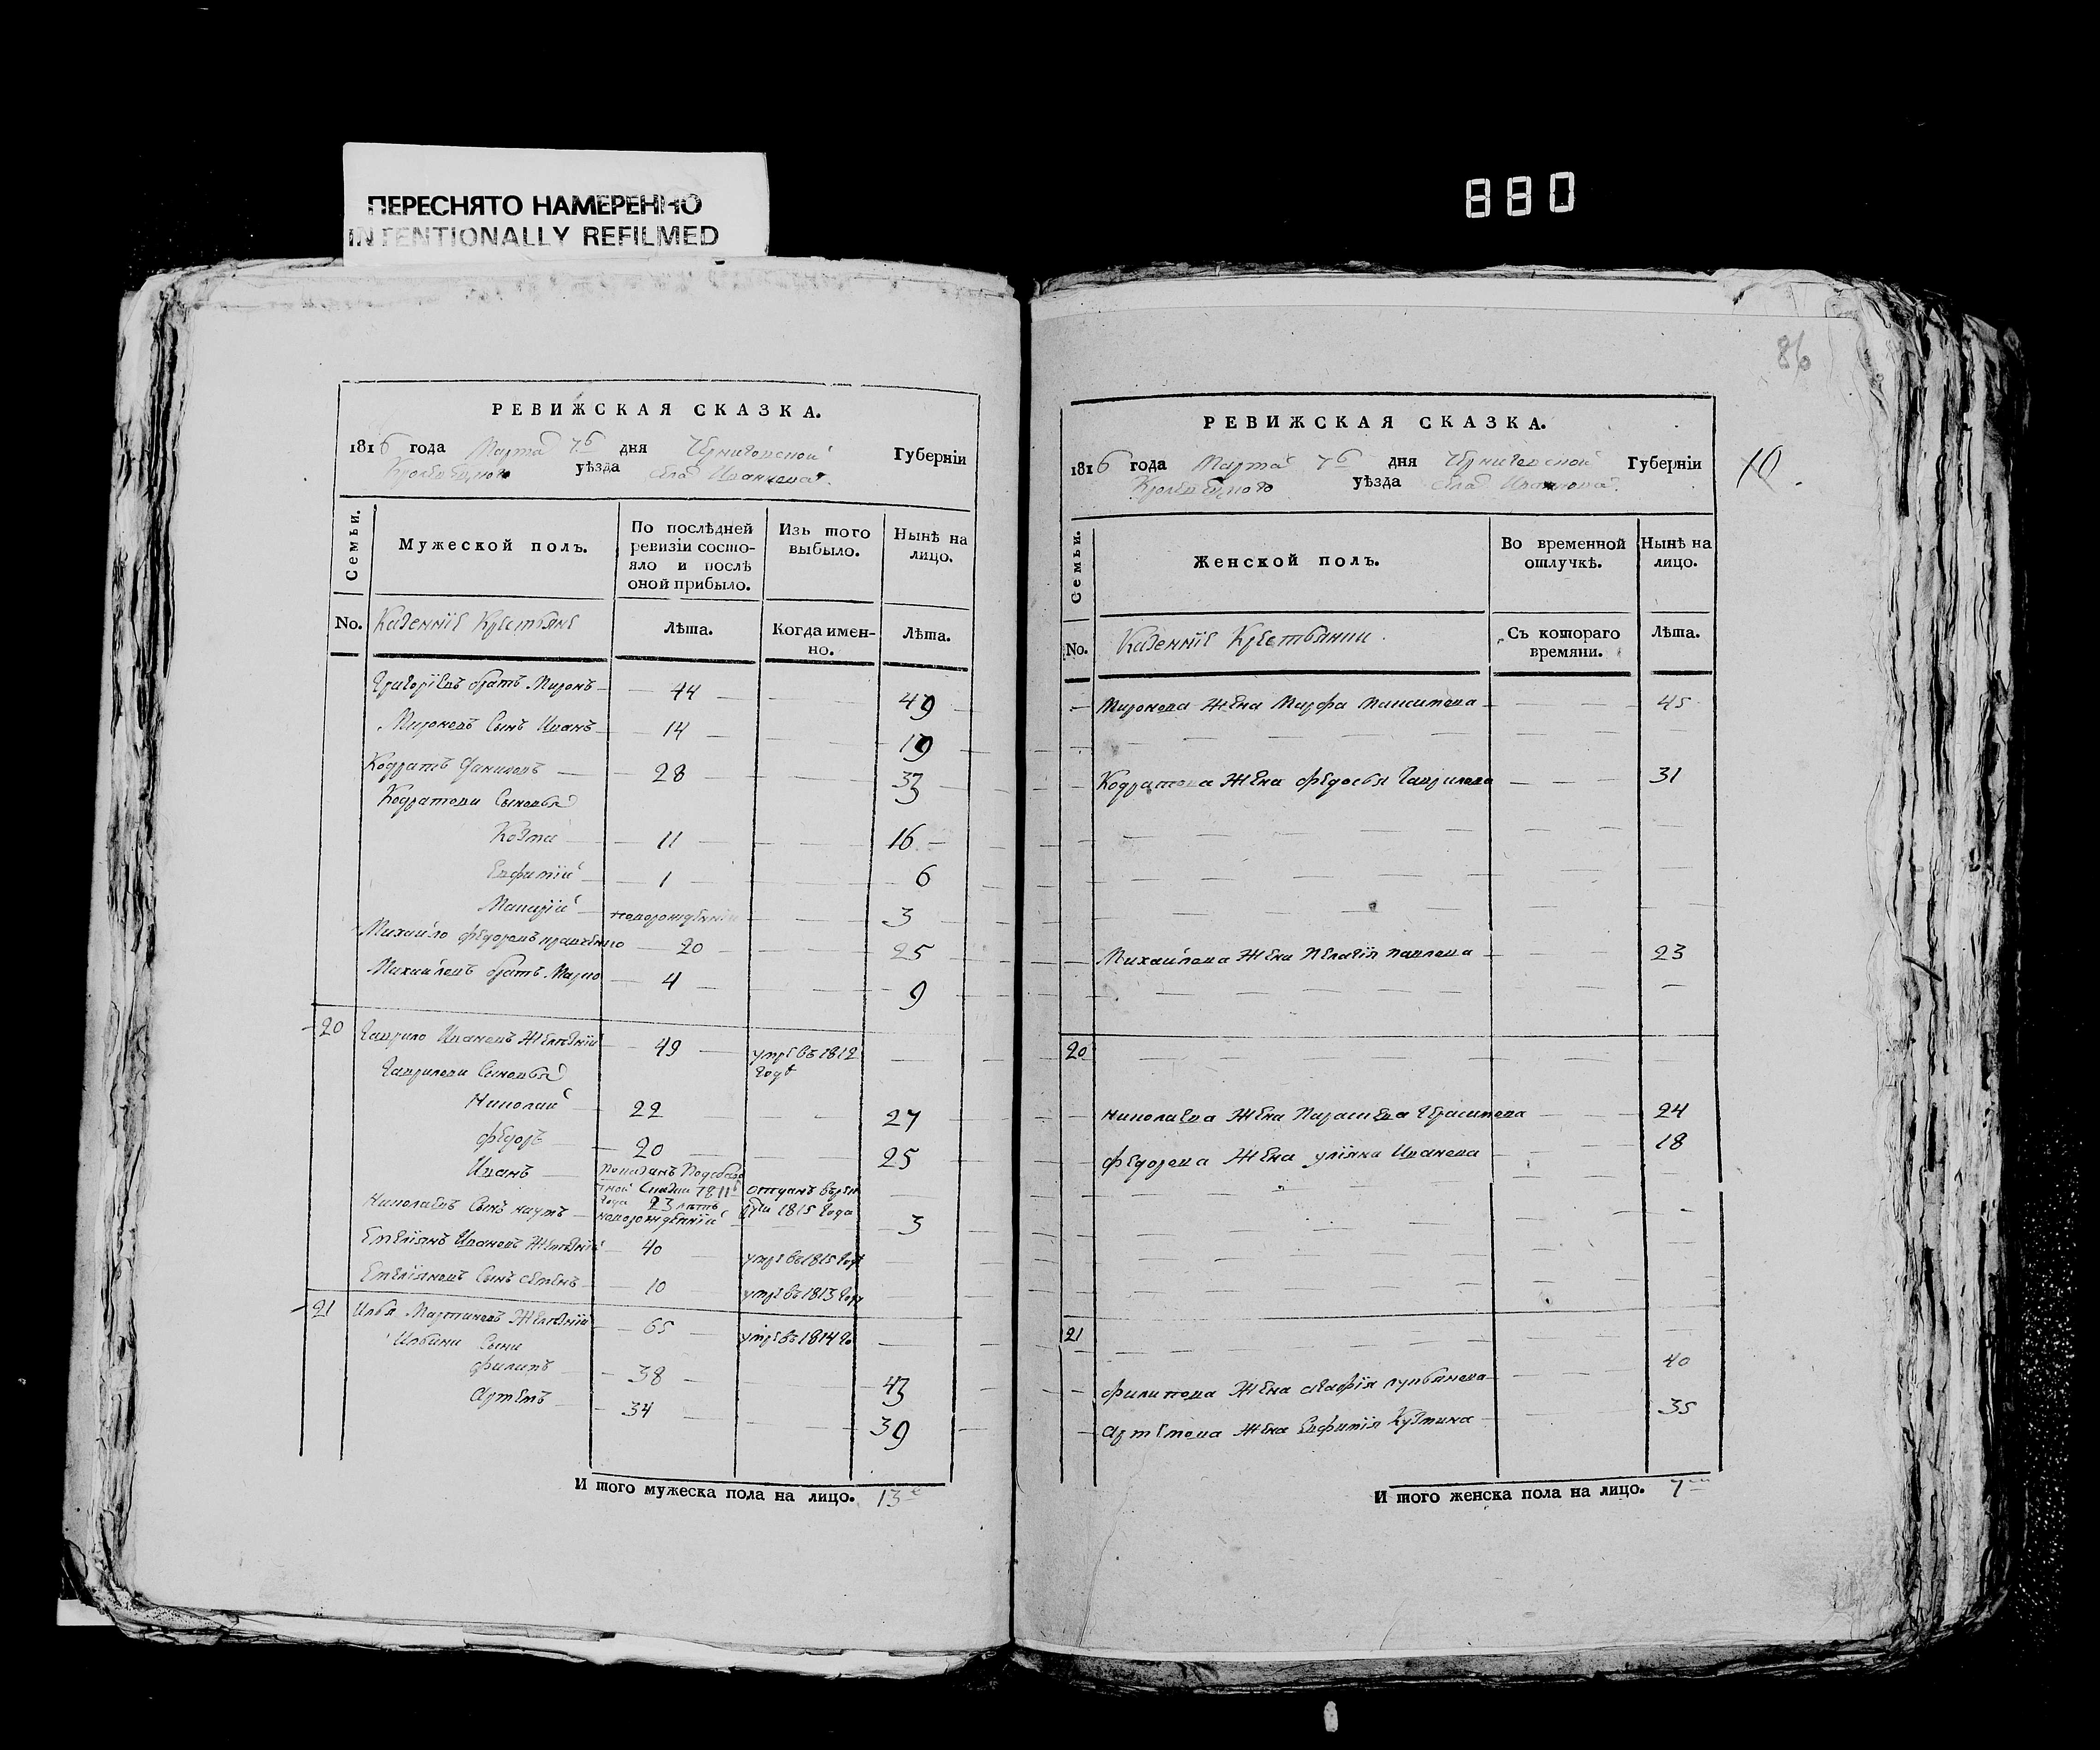 ПЕРЕСНЯТО НАМЕРЕННО
INTENTIONALLY REFILMED
880
86
РЕВИЖСКАЯ СКАЗКА.
1816 года Марта 7го дня Черниговской Губерніи
Кролевецкого уѣзда села
Семьи.
Мужеской полъ.
По послѣдней
ревизіи состо-
яло и послѣ
оной прибыло.
Изъ того
выбыло.
Нынѣ на
лицо.
No.
Казеннiе Крестьяне
Лѣта.
Когда имен-
но.
Лѣта.
Григорiевъ братъ Миронъ 44 49
Мироновъ Сынъ Иванъ 14 19
Кодратъ Даниловъ 28 33
Кодратови Сыновья
Козма 11 16
Евфимiй 1 6
Макарiй новорожденнiй 3
Михайло Федоровъ 20 25
Михайловъ братъ Марко 4 9
20 Гаврило Ивановъ 49 умре въ 1812
годѣ
Гаврилови Сыновья
Николай 22 27
Федоръ 20 25
Иванъ показанъ
1811 года 23 лѣтъ отданъ въ
1815 года
Николаевъ Сынъ наумъ новорожденнiй 3
Емелiянъ Ивановъ 40 умре въ 1815 годѣ
Емелiяновъ Сынъ Семенъ 10 умре въ 1813 годѣ
21 Илья Мартиновъ 65 умре въ 1814 го
Ильини Сыни
Филипъ 38 43
Артемъ 34 39
И того мужеска пола на лицо. 13
РЕВИЖСКАЯ СКАЗКА.
1816 года Марта 7го дня Черниговской Губерніи
Кролевецкого уѣзда села
10.
Семьи.
Женской полъ.
Во временной
отлучкѣ.
Нынѣ на
лицо.
No.
Казеннiе Крестьянки
Съ котораго
времяни.
Лѣта.
Миронова Жена Марфа Максимова 45
Кодратова Жена Федосья Гаврилова 31
Михайлова Жена Пелагiя Павлова 23
20
Николаева Жена Параскева Герасимова 24
Федорова Жена Улiяна Иванова 18
21
Филипова Жена Агафiя Лукьянова 40
Артемова Жена Евфимiя Кузмина 35
И того женска пола на лицо. 7